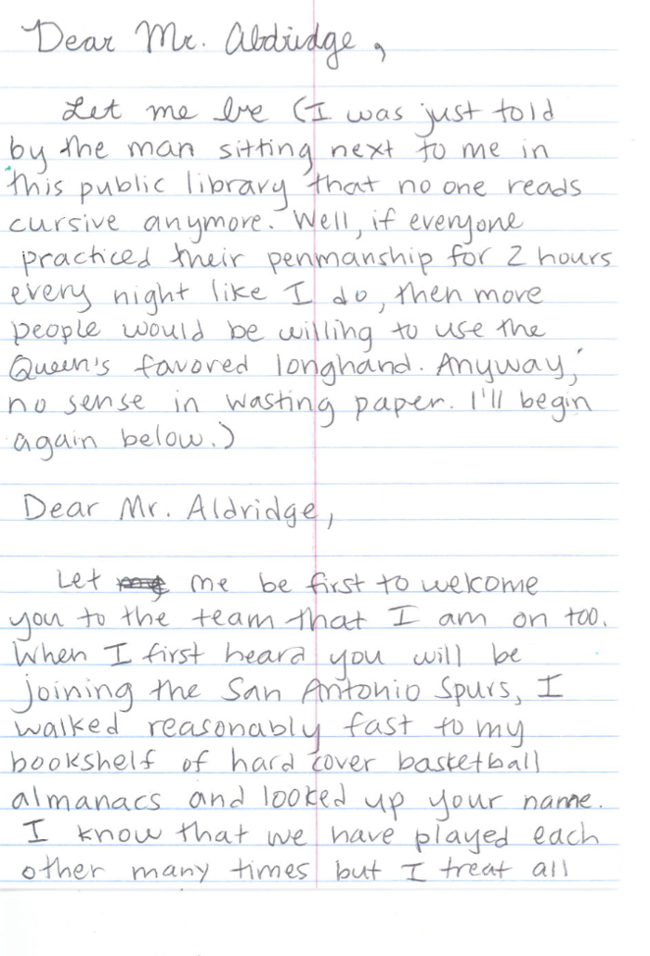 Dear Mr. Aldridge,
Let me be (I was just told
by the man sitting next to me in
this public library that no one reads
cursive anymore. Well, if everyone
practiced their penmanship for 2 hours
every night like I do, then more
people would be willing to use the
Queen's favored longhand. Anyway,
no sense in wasting paper. I'll begin
again below.)
Dear Mr. Aldridge,
Let me be first to welcome
you to the team that I am on too.
When I first heard you will be
joining the San Antonio Spurs, I
walked reasonably fast to my
bookshelf of hard cover basketball
almanacs and looked up your name.
I know that we have played each
other many times but I treat all